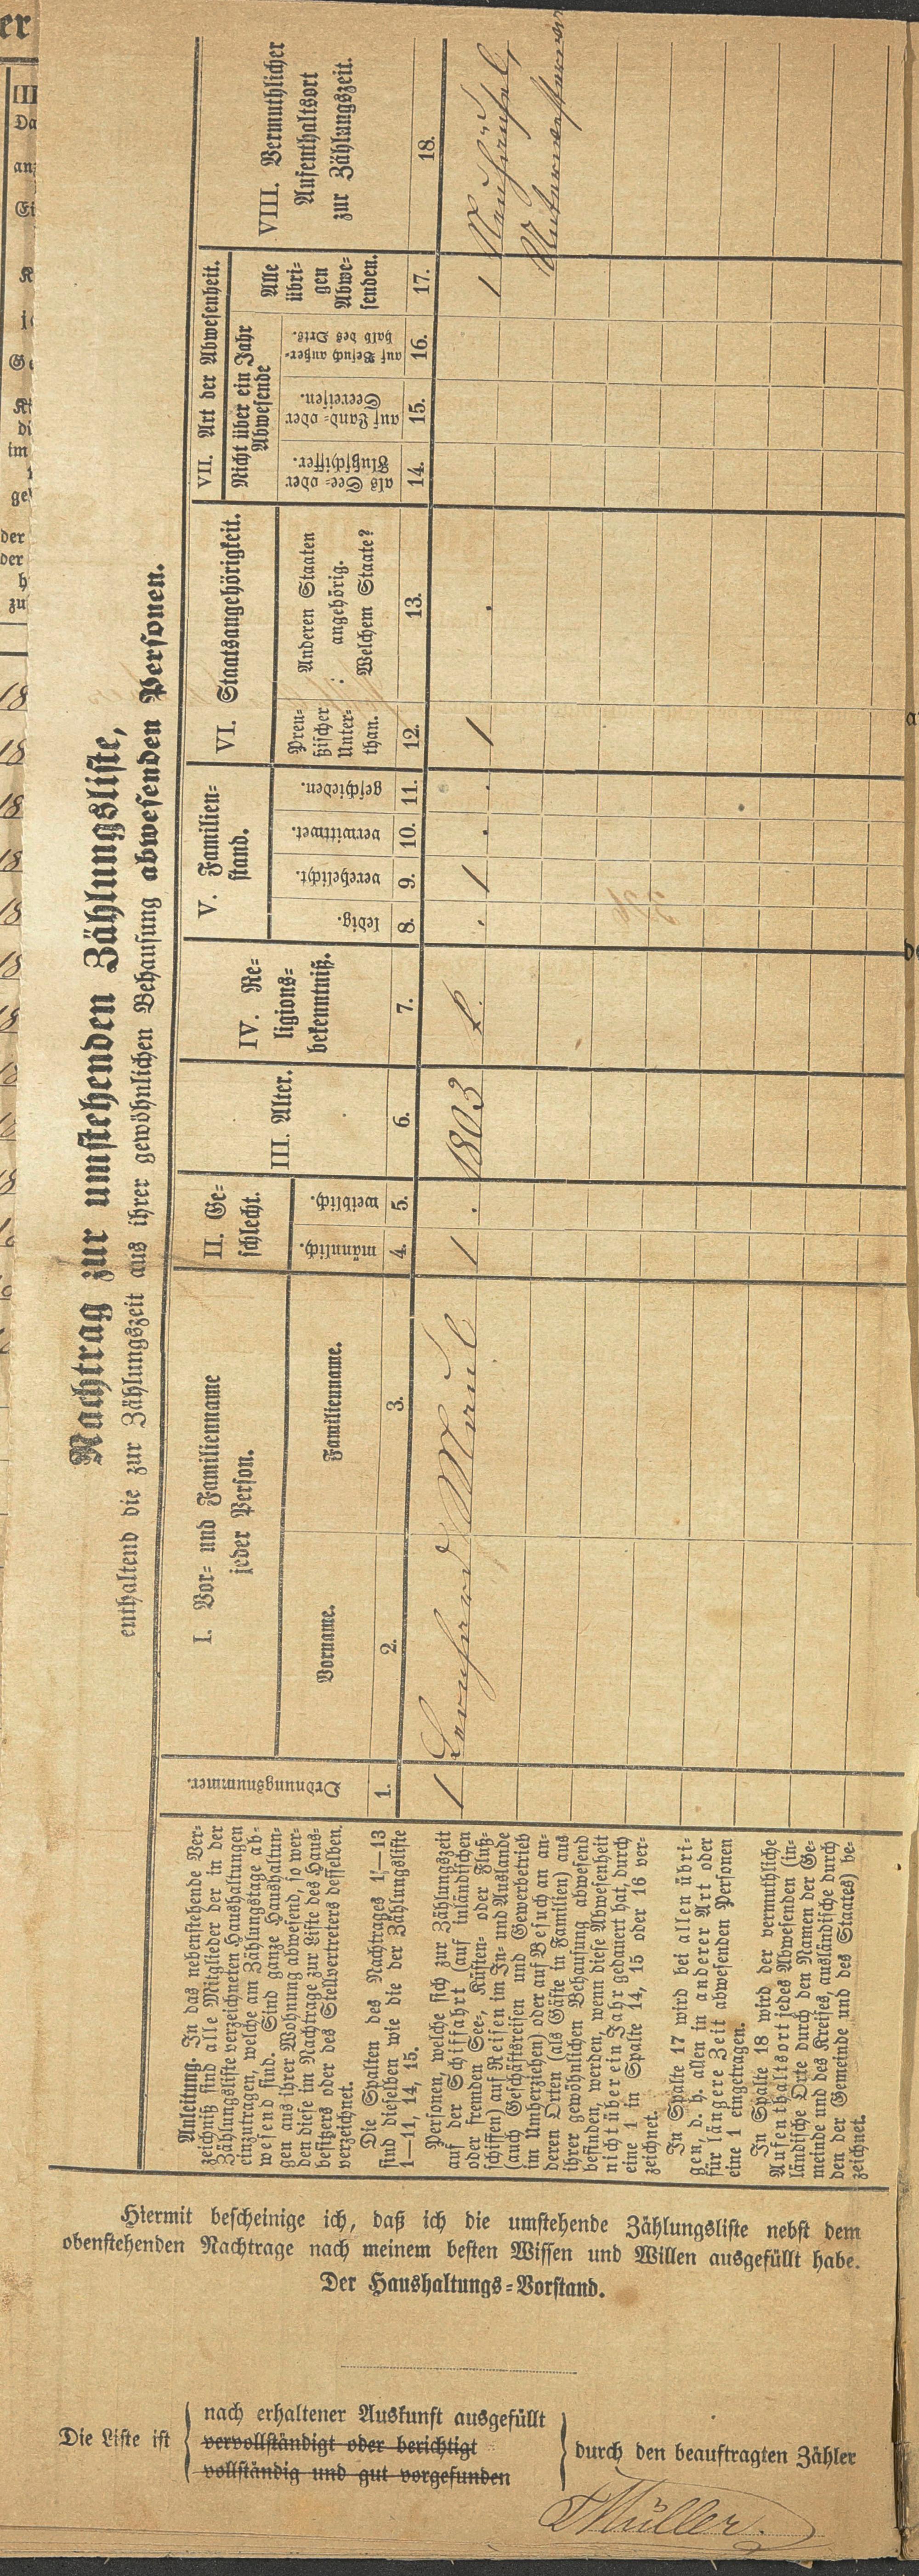 Nachtrag zur umstehenden Zählungsliste,
enthaltend die zur Zählungszeit aus ihrer gewöhnlichen Behausung abwesenden Personen.
Anleitung. In das nebenstehende Ver-
zeichniß sind alle Mitglieder der in der
Zählungsliste verzeichneten Haushaltungen
einzutragen, welche am Zählungstage ab-
wesend sind. Sind ganze Haushaltun-
gen aus ihrer Wohnung abwesend, so wer-
den diese im Nachtrage zur Liste des Haus-
besitzers oder des Stellvertreters desselben
verzeichnet.
Die Spalten des Nachtrages 1—13
sind dieselben wie die der Zählungsliste
1—11, 14, 15.
Personen, welche sich zur Zählungszeit
auf der Schiffahrt (auf inländischen
oder fremden See-, Küsten- oder Fluß-
schiffen) auf Reisen im In- und Auslande
(auch Geschäftsreisen und Gewerbetrieb
im Umherziehen) oder auf Besuch an an-
deren Orten (als Gäste in Familien) aus
ihrer gewöhnlichen Behausung abwesend
befinden, werden, wenn diese Abwesenheit
nicht über ein Jahr gedauert hat, durch
eine 1 in Spalte 14, 15 oder 16 ver-
zeichnet.
In Spalte 17 wird bei allen übri-
gen, d. h. allen in anderer Art oder
für längere Zeit abwesenden Personen
eine 1 eingetragen.
In Spalte 18 wird der vermuthliche
Aufenthaltsort jedes Abwesenden (in-
ländische Orte durch den Namen der Ge-
meinde und des Kreises, ausländische durch
den der Gemeinde und des Staates) be-
zeichnet.
Ordnungsnummer.
1.
I. Vor- und Familienname
jeder Person.
Vorname.
2.
Familienname.
3.
II. Ge-
schlecht.
männlich.
4.
weiblich.
5.
III. Alter.
6.
IV. Re-
ligions-
bekenntniß.
7.
V. Familien-
stand.
ledig.
8.
verehelicht.
9.
verwittwet.
10.
geschieden.
11.
VI. Staatsangehörigkeit.
Preu-
ßischer
Unter-
than.
12.
Anderen Staaten
angehörig.
Welchem Staate?
13.
VII. Art der Abwesenheit.
Nicht über ein Jahr
Abwesende
als See- oder
Flußschiffer.
14.
auf Land- oder
Seereisen.
15.
auf Besuch außer-
halb des Orts.
16.
Alle
übri-
gen
Abwe-
senden.
17.
VIII. Vermuthlicher
Aufenthaltsort
zur Zählungszeit.
18.
1 1 . 1803 . 1 . . 1 . 1
Hiermit bescheinige ich, daß ich die umstehende Zählungsliste nebst dem
obenstehenden Nachtrage nach meinem besten Wissen und Willen ausgefüllt habe.
Der Haushaltungs-Vorstand.
Die Liste ist
nach erhaltener Auskunft ausgefüllt
vervollständigt oder berichtigt
vollständig und gut vorgefunden
durch den beauftragten Zähler
Müller.